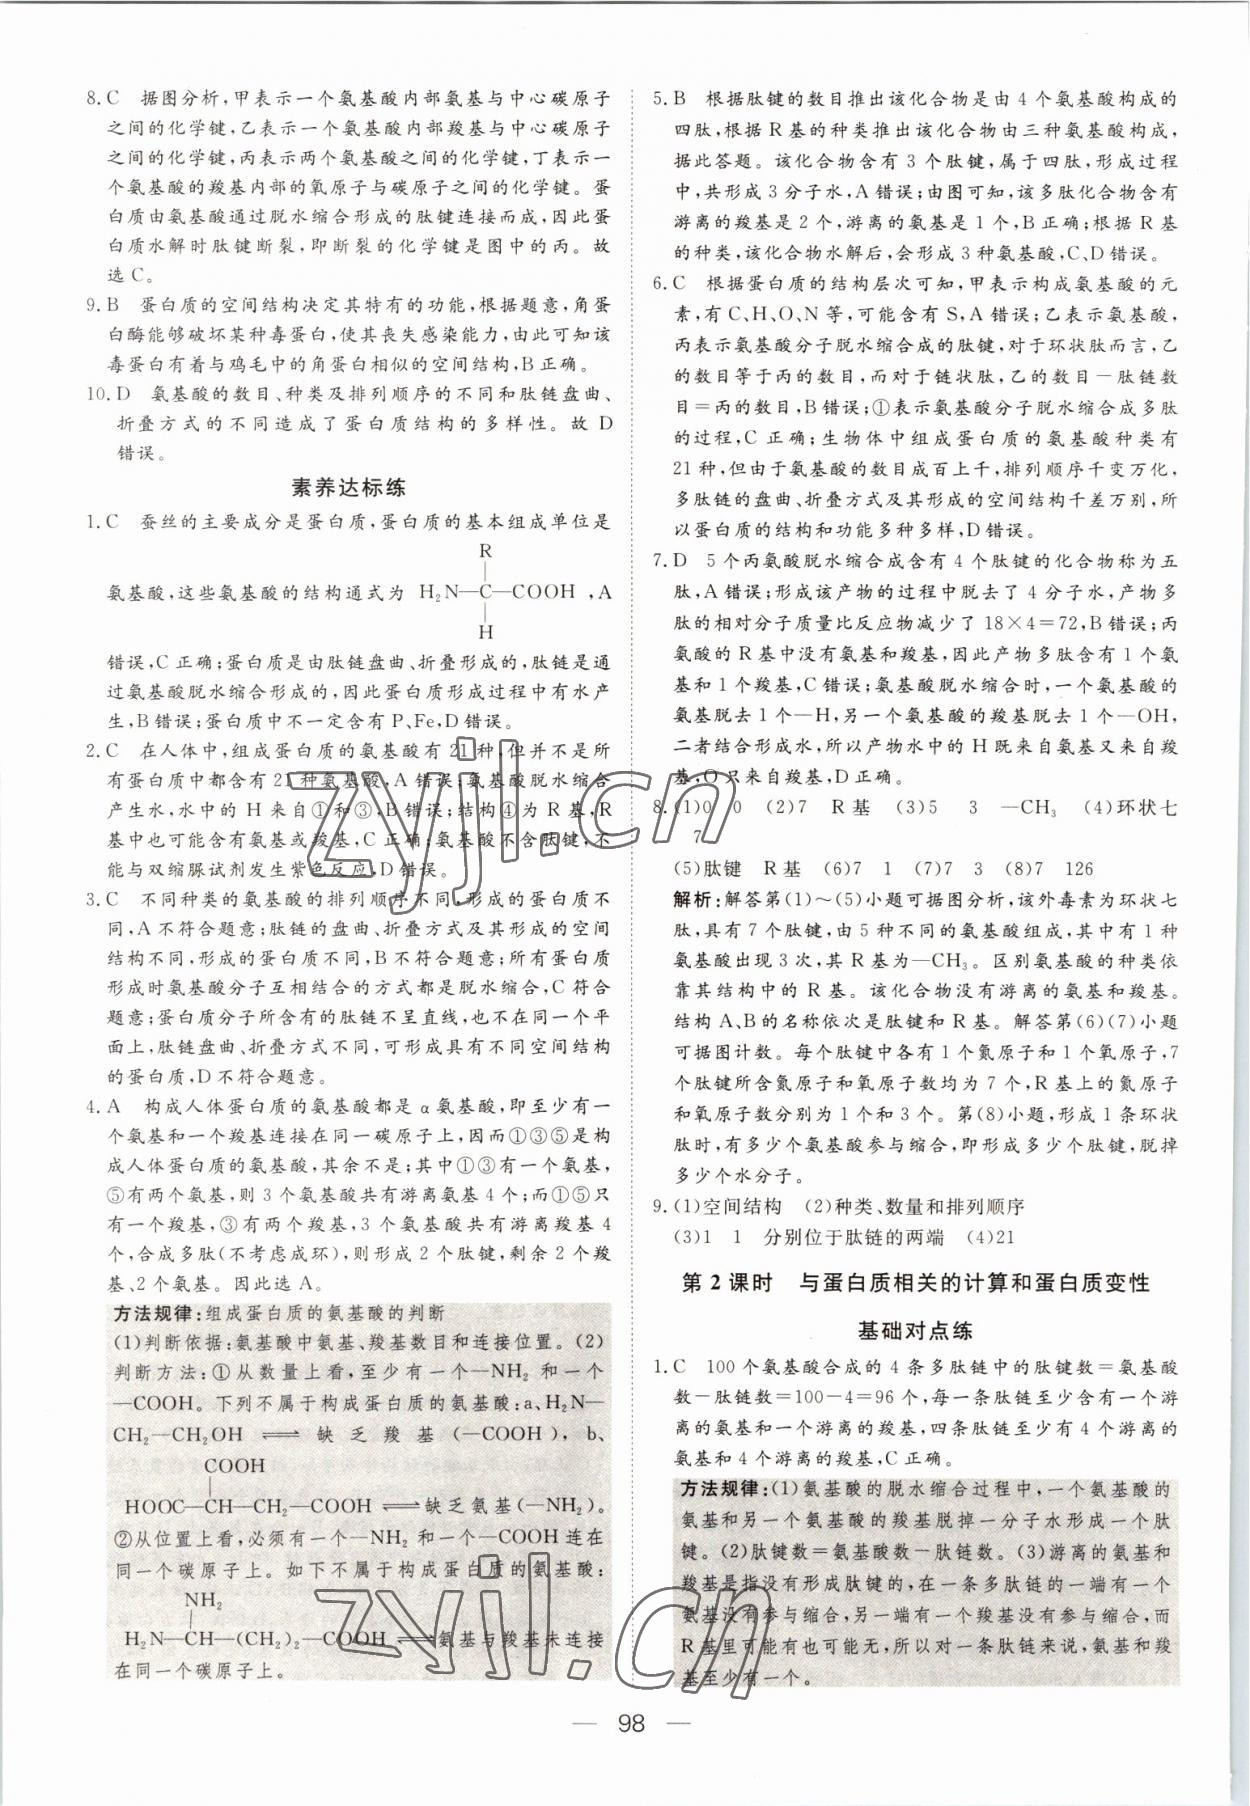 8. C　据图分析,甲表示一个氨基酸内部氨基与中心碳原子
之间的化学键,乙表示一个氨基酸内部羧基与中心碳原子
之间的化学键,丙表示两个氨基酸之间的化学键,丁表示一
个氨基酸的羧基内部的氧原子与碳原子之间的化学键。蛋
白质由氨基酸通过脱水缩合形成的肽键连接而成,因此蛋
白质水解时肽键断裂,即断裂的化学键是图中的丙。故
选 C。
9. B　蛋白质的空间结构决定其特有的功能,根据题意,角蛋
白酶能够破坏某种毒蛋白,使其丧失感染能力,由此可知该
毒蛋白有着与鸡毛中的角蛋白相似的空间结构,B 正确。
10. D　氨基酸的数目、种类及排列顺序的不同和肽链盘曲、
折叠方式的不同造成了蛋白质结构的多样性。故 D
错误。
素养达标练
1. C　蚕丝的主要成分是蛋白质,蛋白质的基本组成单位是
R
氨基酸,这些氨基酸的结构通式为 H₂N—C—COOH ,A
H
错误,C 正确;蛋白质是由肽链盘曲、折叠形成的,肽链是通
过氨基酸脱水缩合形成的,因此蛋白质形成过程中有水产
生,B 错误;蛋白质中不一定含有 P、Fe,D 错误。
2. C　在人体中,组成蛋白质的氨基酸有 21 种,但并不是所
有蛋白质中都含有 21 种氨基酸,A 错误;氨基酸脱水缩合
产生水,水中的 H 来自①和③,B 错误;结构④为 R 基,R
基中也可能含有氨基或羧基,C 正确;氨基酸不含肽键,不
能与双缩脲试剂发生紫色反应,D 错误。
3. C　不同种类的氨基酸的排列顺序不同,形成的蛋白质不
同,A 不符合题意;肽链的盘曲、折叠方式及其形成的空间
结构不同,形成的蛋白质不同,B 不符合题意;所有蛋白质
形成时氨基酸分子互相结合的方式都是脱水缩合,C 符合
题意;蛋白质分子所含有的肽链不呈直线,也不在同一个平
面上,肽链盘曲、折叠方式不同,可形成具有不同空间结构
的蛋白质,D 不符合题意。
4. A　构成人体蛋白质的氨基酸都是 α 氨基酸,即至少有一
个氨基和一个羧基连接在同一碳原子上,因而①③⑤是构
成人体蛋白质的氨基酸,其余不是;其中①③有一个氨基,
⑤有两个氨基,则 3 个氨基酸共有游离氨基 4 个;而①⑤只
有一个羧基,③有两个羧基,3 个氨基酸共有游离羧基 4
个,合成多肽(不考虑成环),则形成 2 个肽键,剩余 2 个羧
基、2 个氨基。因此选 A。
方法规律:组成蛋白质的氨基酸的判断
(1)判断依据:氨基酸中氨基、羧基数目和连接位置。(2)
判断方法:①从数量上看,至少有一个—NH₂ 和一个
—COOH。下列不属于构成蛋白质的氨基酸:a、H₂N—
CH₂—CH₂OH ⇌ 缺乏羧基(—COOH),b、
COOH
HOOC—CH—CH₂—COOH ⇌ 缺乏氨基(—NH₂)。
②从位置上看,必须有一个—NH₂ 和一个—COOH 连在
同一个碳原子上。如下不属于构成蛋白质的氨基酸:
NH₂
H₂N—CH—(CH₂)₂—COOH ⇌ 氨基与羧基未连接
在同一个碳原子上。
5. B　根据肽键的数目推出该化合物是由 4 个氨基酸构成的
四肽,根据 R 基的种类推出该化合物由三种氨基酸构成,
据此答题。该化合物含有 3 个肽键,属于四肽,形成过程
中,共形成 3 分子水,A 错误;由图可知,该多肽化合物含有
游离的羧基是 2 个,游离的氨基是 1 个,B 正确;根据 R 基
的种类,该化合物水解后,会形成 3 种氨基酸,C、D 错误。
6. C　根据蛋白质的结构层次可知,甲表示构成氨基酸的元
素,有 C、H、O、N 等,可能含有 S,A 错误;乙表示氨基酸,
丙表示氨基酸分子脱水缩合成的肽键,对于环状肽而言,乙
的数目等于丙的数目,而对于链状肽,乙的数目－肽链数
目＝丙的数目,B 错误;①表示氨基酸分子脱水缩合成多肽
的过程,C 正确;生物体中组成蛋白质的氨基酸种类有
21 种,但由于氨基酸的数目成百上千,排列顺序千变万化,
多肽链的盘曲、折叠方式及其形成的空间结构千差万别,所
以蛋白质的结构和功能多种多样,D 错误。
7. D　5 个丙氨酸脱水缩合成含有 4 个肽键的化合物称为五
肽,A 错误;形成该产物的过程中脱去了 4 分子水,产物多
肽的相对分子质量比反应物减少了 18×4＝72,B 错误;丙
氨酸的 R 基中没有氨基和羧基,因此产物多肽含有 1 个氨
基和 1 个羧基,C 错误;氨基酸脱水缩合时,一个氨基酸的
氨基脱去 1 个—H,另一个氨基酸的羧基脱去 1 个—OH,
二者结合形成水,所以产物水中的 H 既来自氨基又来自羧
基,O 只来自羧基,D 正确。
8. (1)0　0　(2)7　R 基　(3)5　3　—CH₃　(4)环状七
7
(5)肽键　R 基　(6)7　1　(7)7　3　(8)7　126
解析:解答第(1)～(5)小题可据图分析,该外毒素为环状七
肽,具有 7 个肽键,由 5 种不同的氨基酸组成,其中有 1 种
氨基酸出现 3 次,其 R 基为—CH₃。区别氨基酸的种类依
靠其结构中的 R 基。该化合物没有游离的氨基和羧基。
结构 A、B 的名称依次是肽键和 R 基。解答第(6)(7)小题
可据图计数。每个肽键中各有 1 个氮原子和 1 个氧原子,7
个肽键所含氮原子和氧原子数均为 7 个,R 基上的氮原子
和氧原子数分别为 1 个和 3 个。第(8)小题,形成 1 条环状
肽时,有多少个氨基酸参与缩合,即形成多少个肽键,脱掉
多少个水分子。
9. (1)空间结构　(2)种类、数量和排列顺序
(3)1　1　分别位于肽链的两端　(4)21
第 2 课时　与蛋白质相关的计算和蛋白质变性
基础对点练
1. C　100 个氨基酸合成的 4 条多肽链中的肽键数＝氨基酸
数－肽链数＝100－4＝96 个,每一条肽链至少含有一个游
离的氨基和一个游离的羧基,四条肽链至少有 4 个游离的
氨基和 4 个游离的羧基,C 正确。
方法规律:(1)氨基酸的脱水缩合过程中,一个氨基酸的
氨基和另一个氨基酸的羧基脱掉一分子水形成一个肽
键。(2)肽键数＝氨基酸数－肽链数。(3)游离的氨基和
羧基是指没有形成肽键的,在一条多肽链的一端有一个
氨基没有参与缩合,另一端有一个羧基没有参与缩合,而
R 基里可能有也可能无,所以对一条肽链来说,氨基和羧
基至少有一个。
— 98 —
zyjl.cn
zyjl.cn